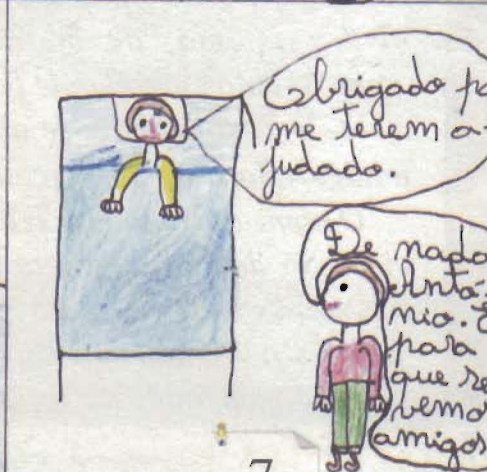 Obrigado po
me terem a-
judado.
De nada
Antó-
nio. É
para
que se
vemos
amigos
7